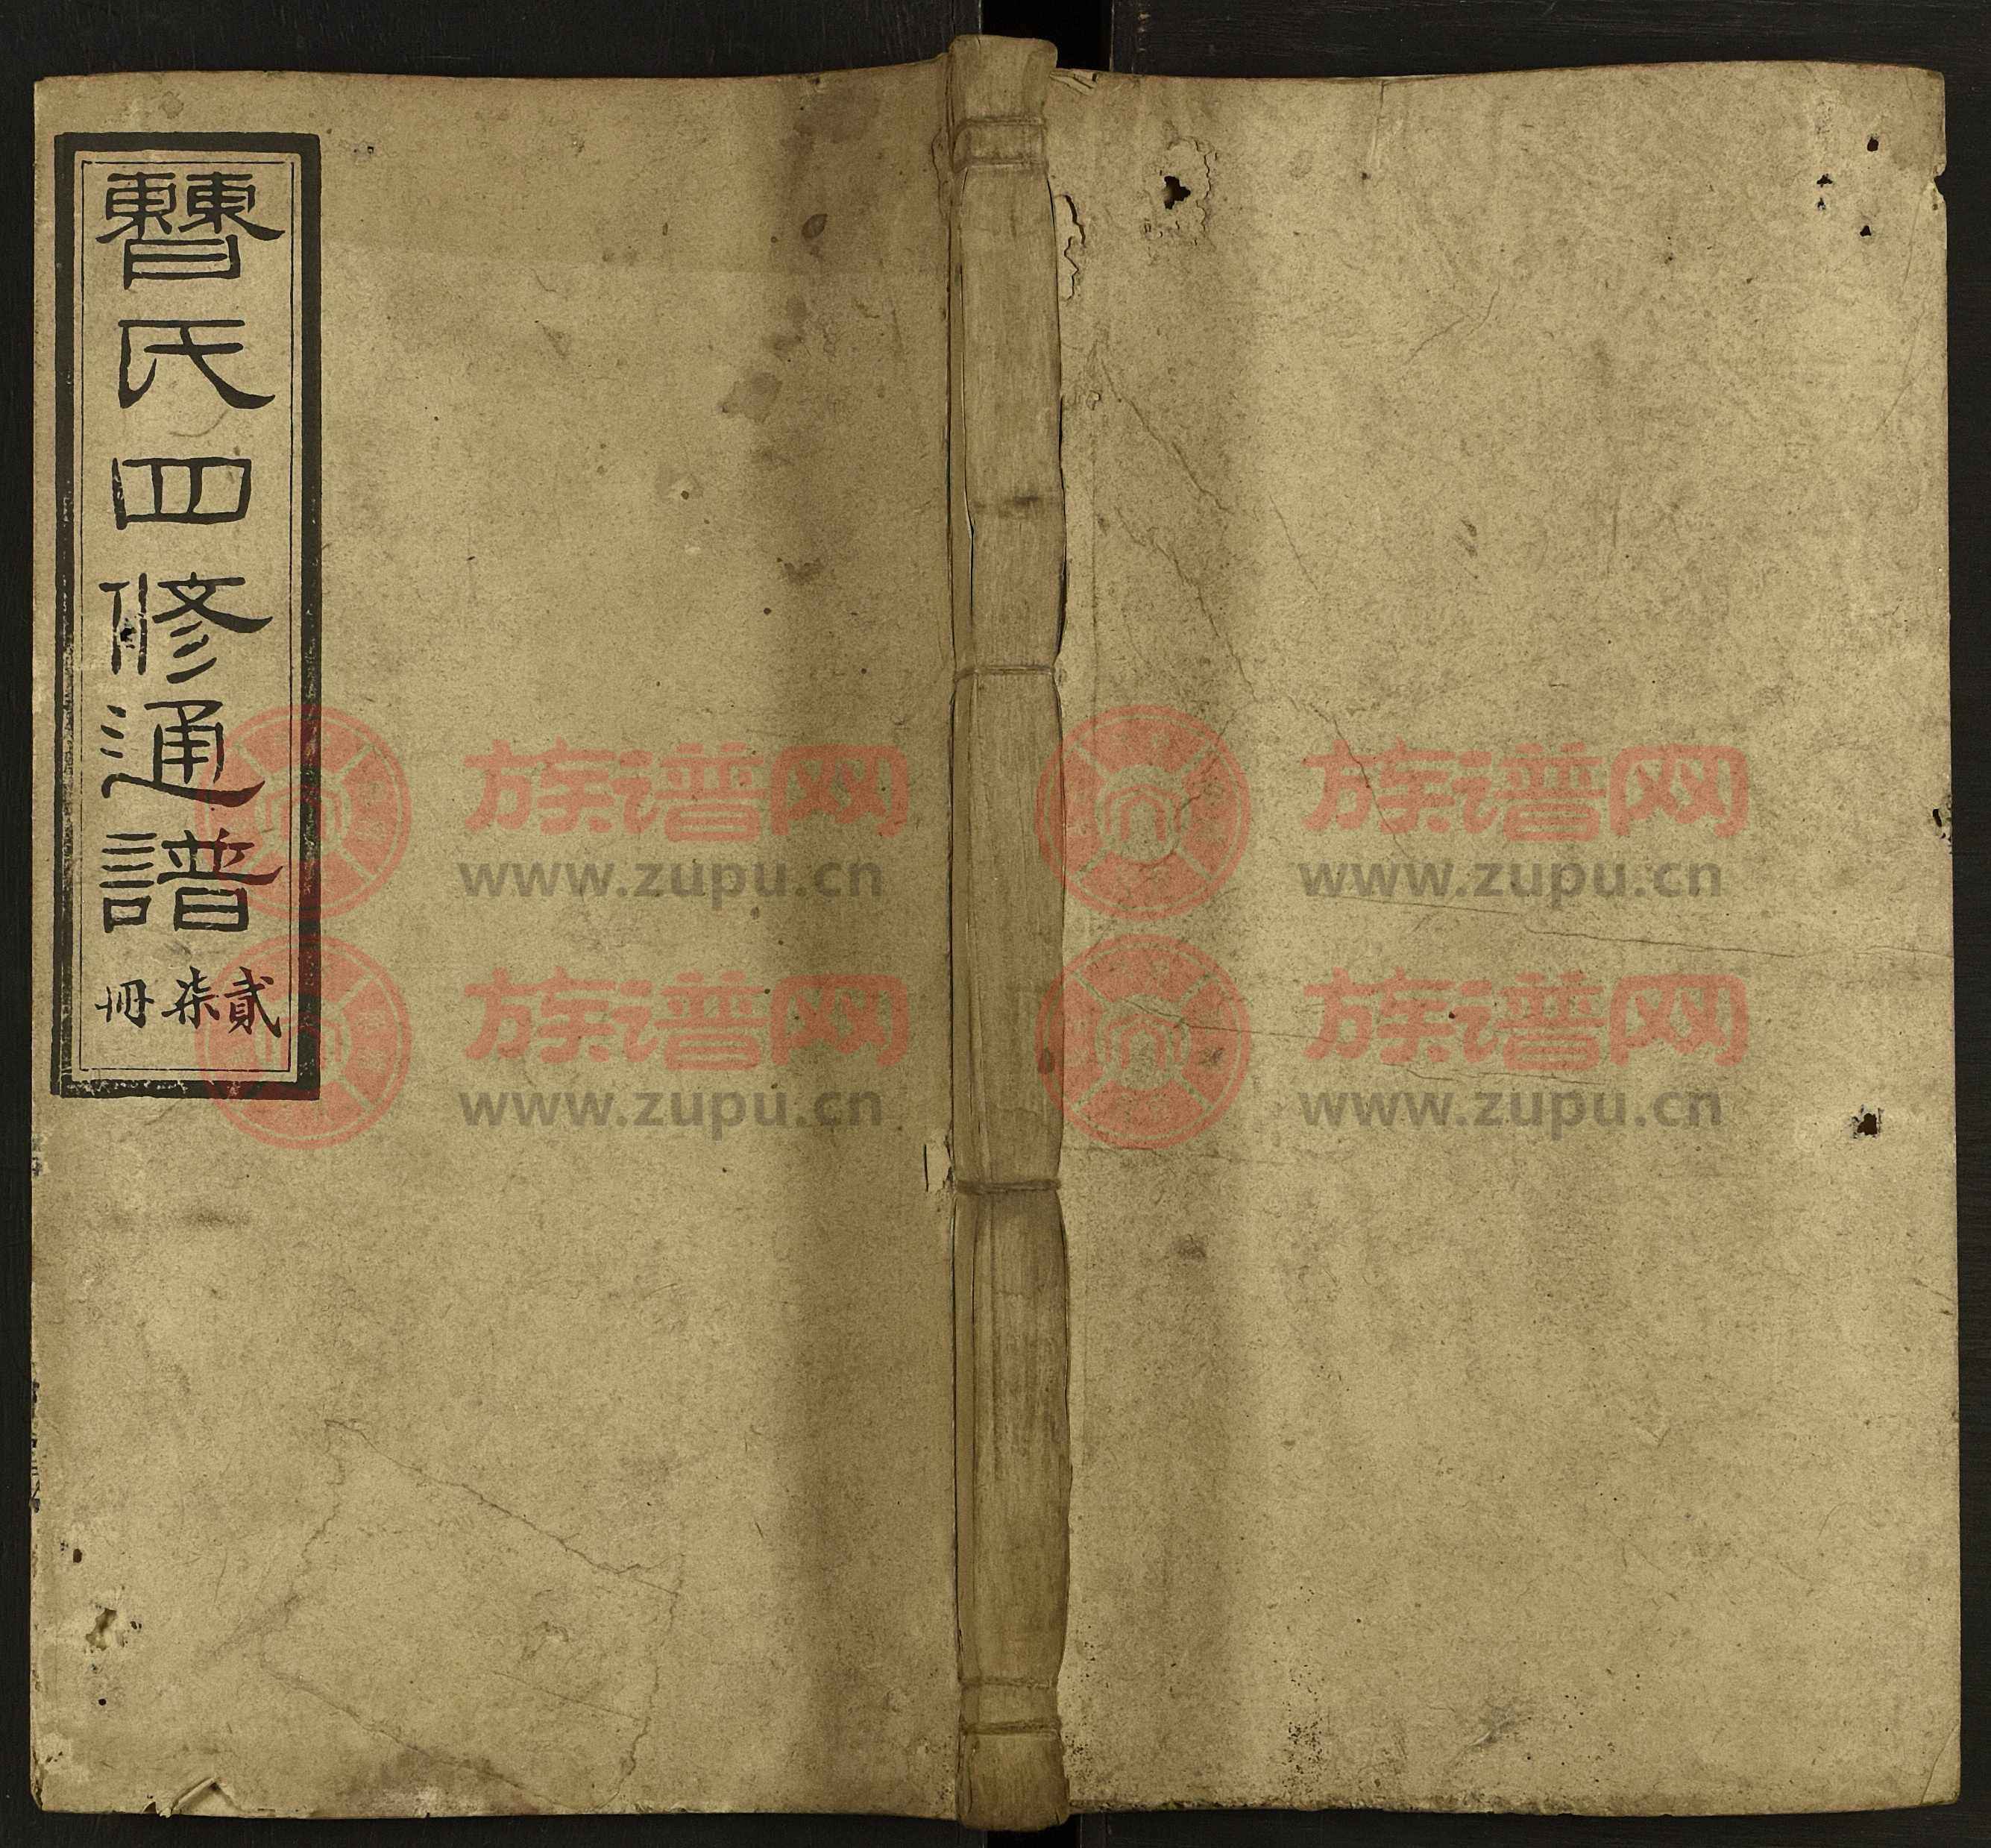 曹氏四修通譜
貳柒冊
族谱网
www.zupu.cn
族谱网
www.zupu.cn
族谱网
www.zupu.cn
族谱网
www.zupu.cn